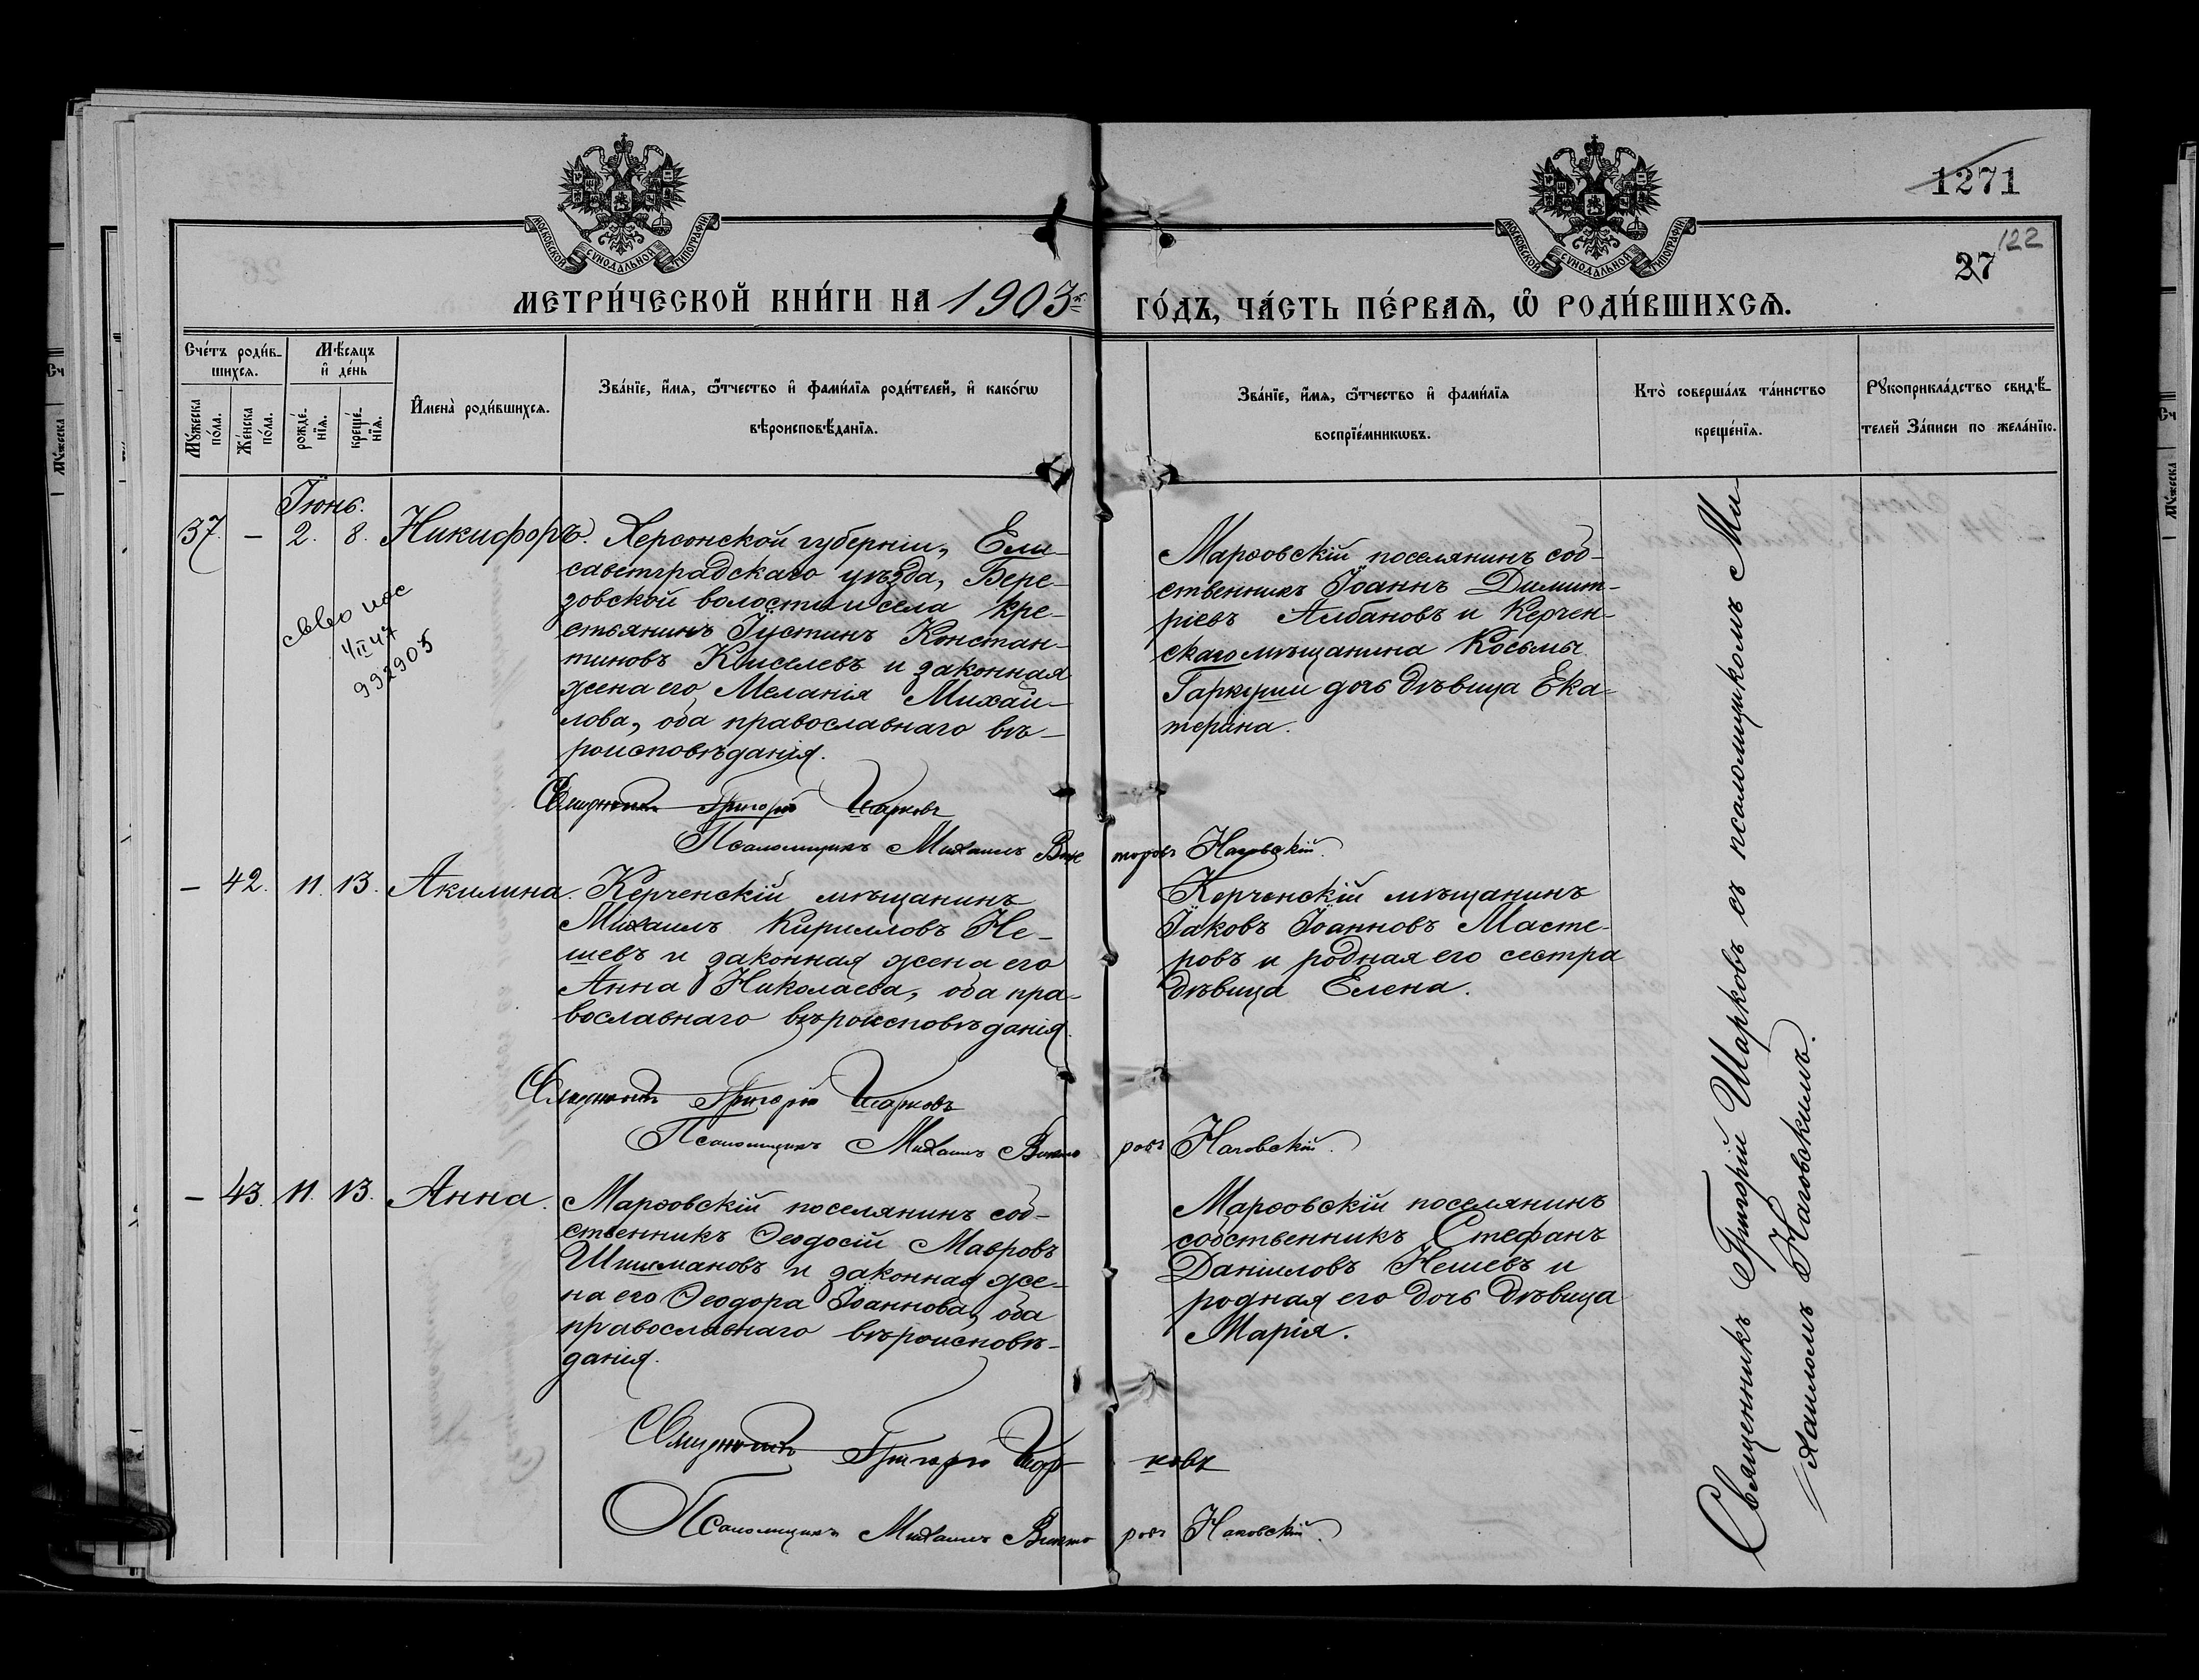 1271
27
122
МОСКОВСКОЙ СѴНОДАЛЬНОЙ ТИПОГРАФІИ
МОСКОВСКОЙ СѴНОДАЛЬНОЙ ТИПОГРАФІИ
МЕТРИ́ЧЕСКОЙ КНИ́ГИ НА 1903й ГО́ДЪ, ЧА́СТЬ ПЕ́РВАѦ, Ѡ҆ РОДИ́ВШИХСѦ.
Сче́тъ роди́в-
шихсѧ.
Мѣ́сѧцъ
и҆ де́нь
Мꙋ́жеска
по́ла.
Же́нска
по́ла.
рожде́-
нїѧ.
креще́-
нїѧ.
И҆мена̀ роди́вшихсѧ.
Зва́нїе, и҆́мѧ, ѻ҆́тчество и҆ фами́лїѧ роди́телей, и҆ како́гѡ
вѣроисповѣ́данїѧ.
Зва́нїе, и҆́мѧ, ѻ҆́тчество и҆ фами́лїѧ
воспрїе́мникѡвъ.
Кто̀ соверша́лъ та́инство
креще́нїѧ.
Рꙋкоприкла́дство свидѣ́-
телей За́писи по жела́нїю.
Іюнь.
37. — 2. 8. Никифоръ.
Херсонской губерніи, Ели-
саветградскаго уѣзда, Бере-
зовской волости и села кре-
стьянинъ Іустинъ Констан-
тиновъ Киселевъ и законная
жена его Меланія Михаи-
лова, оба православнаго вѣ-
роисповѣданія.
Марѳовскій поселянинъ соб-
ственникъ Іоаннъ Димит-
ріевъ Албановъ и Керчен-
скаго мѣщанина Косьмы
Гаркуши дочь дѣвица Ека-
терина.
4/II 47
992905
Священникъ Григорій Шарковъ
Псаломщикъ Михаилъ Викторовъ Наговскій.
— 42. 11. 13. Акилина.
Керченскій мѣщанинъ
Михаилъ Кирилловъ Не-
шевъ и законная жена его
Анна Николаева, оба пра-
вославнаго вѣроисповѣданія.
Керченскій мѣщанинъ
Іаковъ Іоанновъ Масте-
ровъ и родная его сестра
дѣвица Елена.
Священникъ Григорій Шарковъ
Псаломщикъ Михаилъ Викторовъ Наговскій.
— 43. 11. 13. Анна.
Марѳовскій поселянинъ соб-
ственникъ Ѳеодосій Мавровъ
Шишмановъ и законная же-
на его Ѳеодора Іоаннова, оба
православнаго вѣроисповѣ-
данія.
Марѳовскій поселянинъ
собственникъ Стефанъ
Даніиловъ Нешевъ и
родная его дочь дѣвица
Марія.
Священникъ Григорій Шарковъ
Псаломщикъ Михаилъ Викторовъ Наговскій.
Священникъ Григорій Шарковъ съ псаломщикомъ Ми-
хаиломъ Наговскимъ.